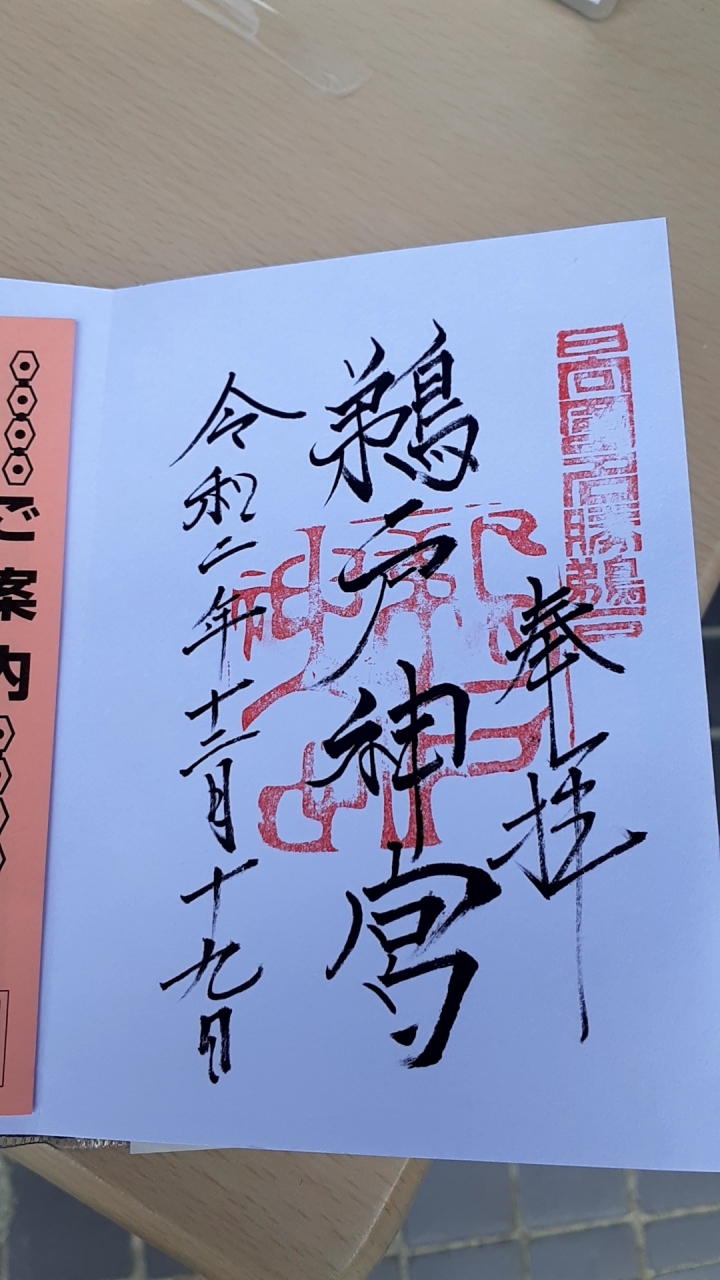 日向國名勝鵜戸
奉拝
鵜戸神宮
令和二年十二月十九日
ご案内